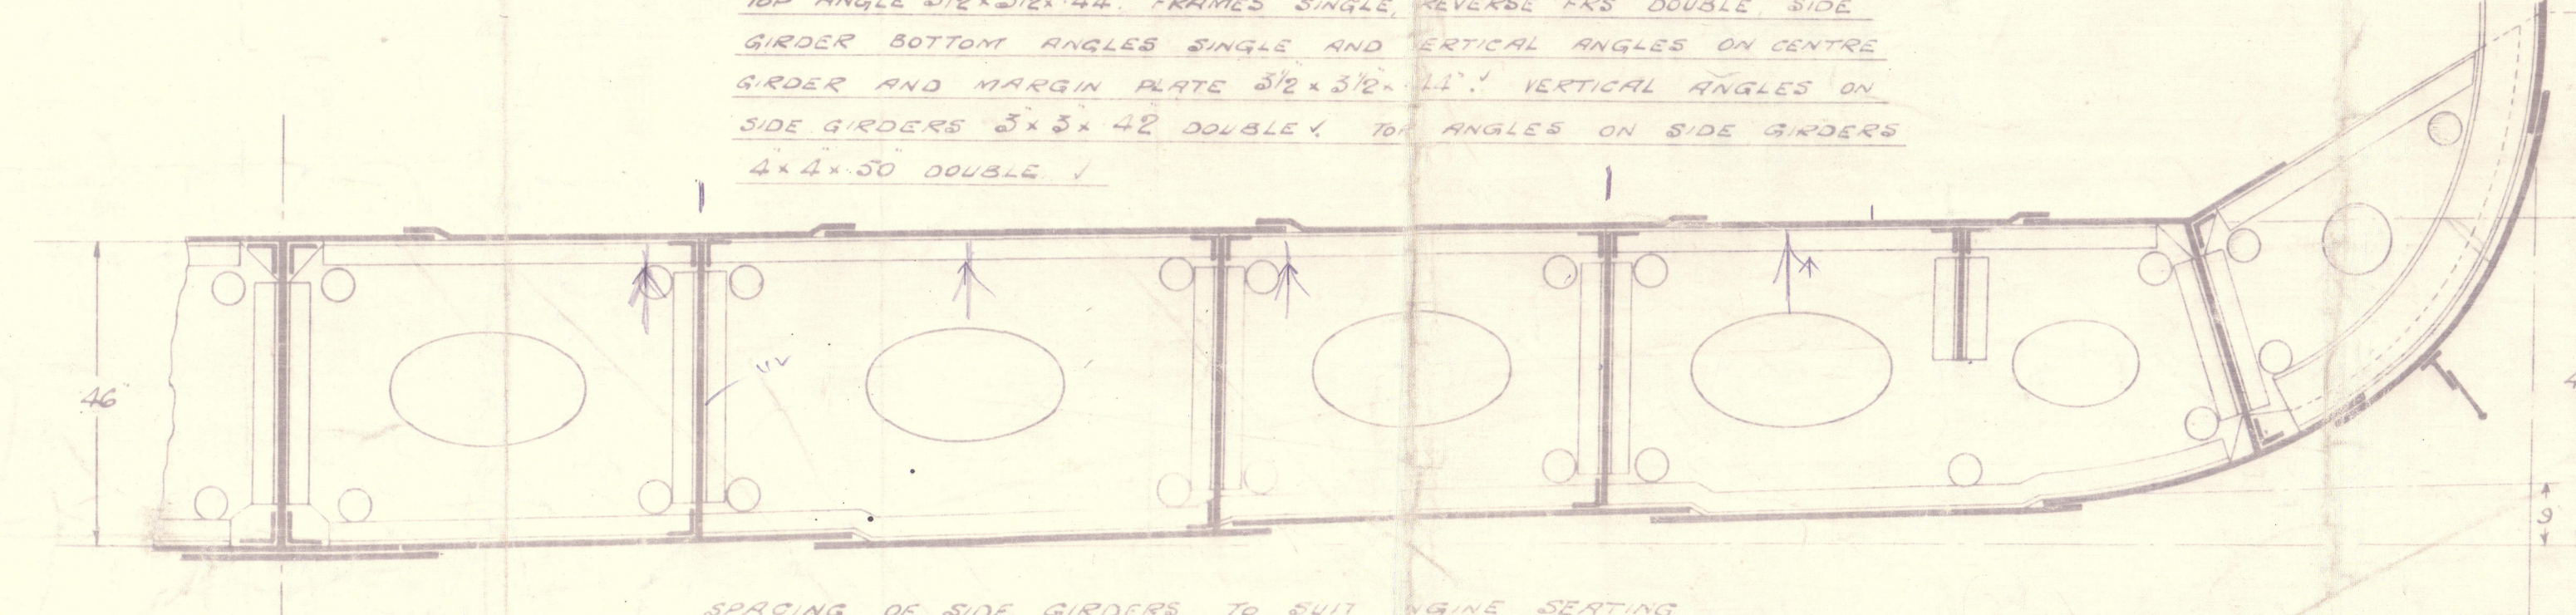 TOP ANGLE 3½" × 3½" × .44". FRAMES SINGLE, REVERSE FRS DOUBLE. SIDE
GIRDER BOTTOM ANGLES SINGLE AND ERTICAL ANGLES ON CENTRE
GIRDER AND MARGIN PLATE 3½" × 3½" × .44". ✓ VERTICAL ANGLES ON
SIDE GIRDERS 3" × 3" × .42" DOUBLE ✓. TOP ANGLES ON SIDE GIRDERS
4" × 4" × .50" DOUBLE. ✓
46"
9
SPACING OF SIDE GIRDERS TO SUIT NGINE SEATING